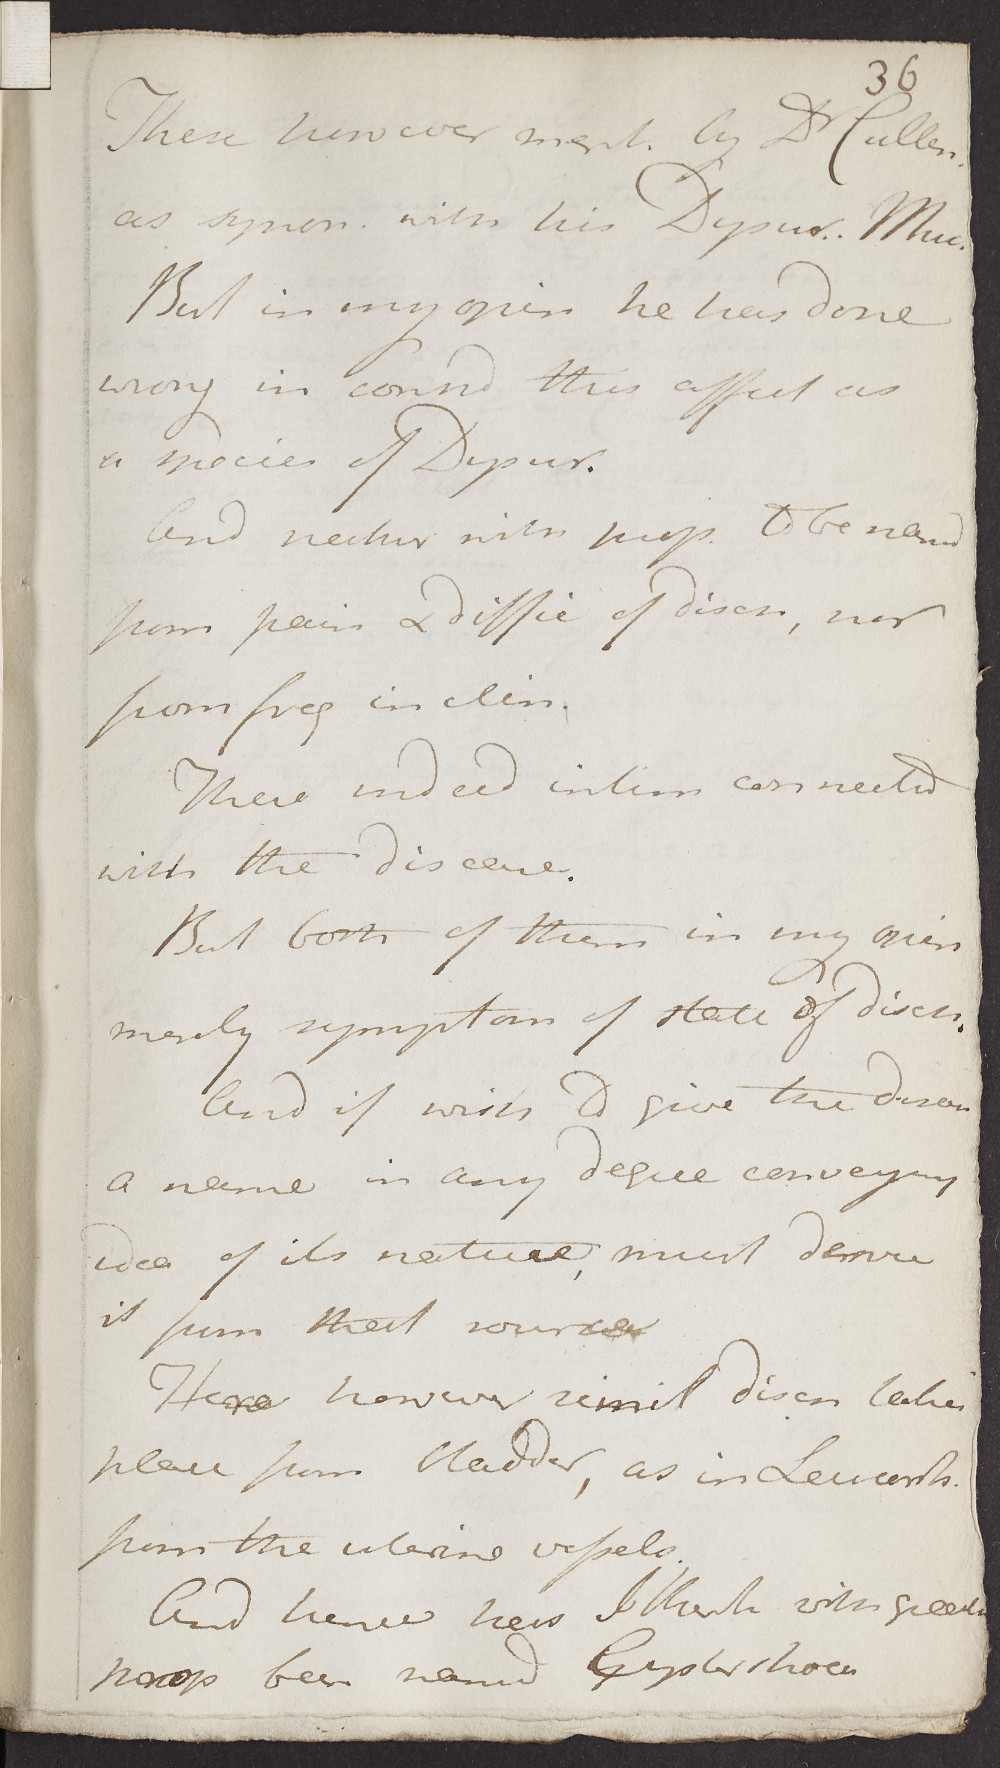 36
These however ment. by Dr Cullen.
as synon. with his Dysur. Muc.
But in my opin he has done
wrong in consd this affect as
a species of Dysur.
And neither with prop. to be namd
from pain & diffic of disch, nor
from freq inclin.
These indeed intim connected
with the disease.
But both of them in my opin
merely symptom of state of disch.
And if wish to give the disease
a name in any degree conveying
idea of its nature, must derive
it from that source
Here however simil disch takes
place from bladder, as in Leucorrh.
from the uterine vessels.
And hence has I think with greater
prop been namd Cystirrhoea